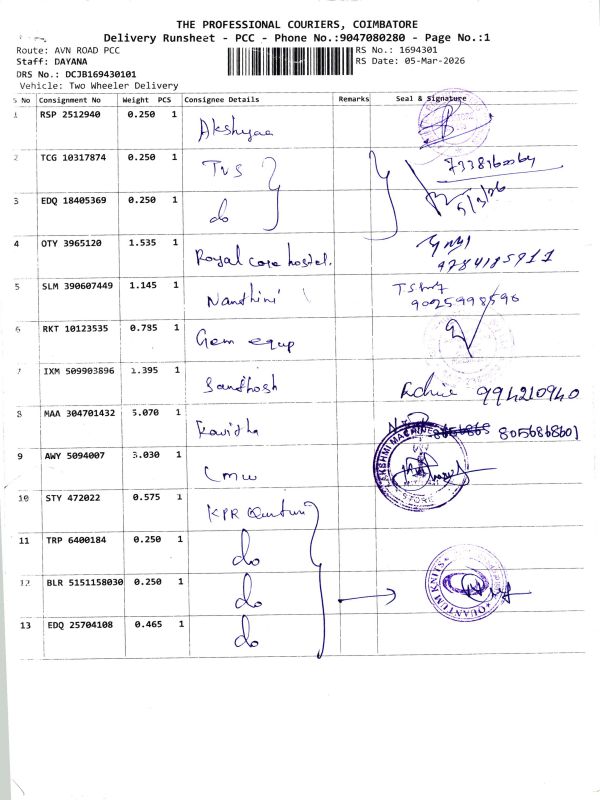 THE PROFESSIONAL COURIERS, COIMBATORE
Delivery Runsheet - PCC - Phone No.:9047080280 - Page No.:1
Route: AVN ROAD PCC
RS No.: 1694301
Staff: DAYANA
RS Date: 05-Mar-2026
DRS No.: DCJB169430101
Vehicle: Two Wheeler Delivery
S No Consignment No Weight PCS Consignee Details Remarks Seal & Signature
1 RSP 2512940 0.250 1 Akshyaa
2 TCG 10317874 0.250 1 TVS
3 EDQ 18405369 0.250 1 do 5/3/26
4 OTY 3965120 1.535 1 Royal care hostel.
5 SLM 390607449 1.145 1 Nandhini 9025998596
6 RKT 10123535 0.785 1 Gem equp
7 IXM 509903896 1.395 1 Sandhosh 994210940
8 MAA 304701432 5.070 1 Kavitha 8056868601
9 AWY 5094007 3.030 1 LMW
LAKSHMI MACHINE
STORE
10 STY 472022 0.575 1 KPR
11 TRP 6400184 0.250 1 do
12 BLR 5151158030 0.250 1 do
QUANTUM KNITS
13 EDQ 25704108 0.465 1 do